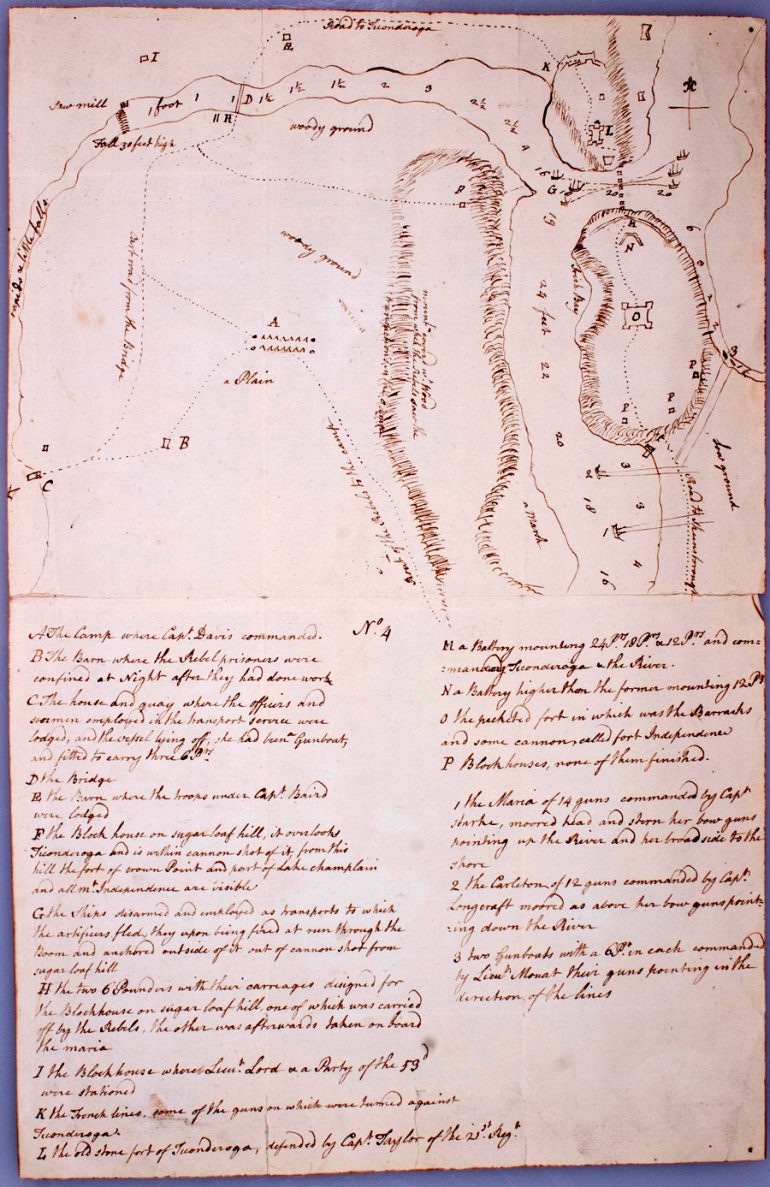 Road to Ticonderoga
I
E
K
Saw mill
1 foot 1 1 D 1½ 1½ 1½ 2 3 2½ 2½ 4
H
Fall 30 feet high
woody ground
L
F
16 G 18 20 20
rapids & little falls
Cart road from the Bridge
woody ground
M
N
19
6
9
2
2
A
a Plain
24 feet
22
O
3
P
B
P
P
C
20
2
18
1
16
a Marsh
3
3
4
low ground
Road to Skeensborough
A The Camp where Capt. Davis commanded.
No. 4
B The Barn where the Rebel prisoners were
confined at Night after they had done work
C The house and quay where the officers and
seamen employed in the transport service were
lodged, and the vessel lying off, she had been a Gunboat,
and fitted to carry three 6 Prs
D the Bridge
E the Barn where the troops under Capt. Baird
were lodged
F the Block house on sugar loaf hill, it overlooks
Ticonderoga and is within cannon shot of it, from this
hill the fort of crown Point and part of Lake champlain
and all mt. Independence are visible
G the Ships disarmed and employed as transports to which
the artificers fled, they upon being fired at run through the
Boom and anchored outside of it out of cannon shot from
sugar loaf hill
H the two 6 Pounders with their carriages designed for
the Blockhouse on sugar loaf hill, one of which was carried
off by the Rebels, the other was afterwards taken on board
the maria
I the Blockhouse where Lieut. Lord & a Party of the 53d
were stationed
K the French lines, some of the guns on which were turned against
Ticonderoga
L the old stone fort of Ticonderoga, defended by Capt. Taylor of the 21st Regt.
M a Battery mounting 24 Prs 18 Prs & 12 Prs and com=
=manding Ticonderoga & the River.
N a Battery higher than the former mounting 12 Prs
O the picketed fort in which was the Barracks
and some cannon, called fort Independence
P Block houses, none of them finished.
1 the Maria of 14 guns commanded by Capt
Starke, moored head and stern her bow guns
pointing up the River and her broad side to the
shore
2 the Carleton of 12 guns commanded by Capt.
Longcraft moored as above her bow guns point=
=ing down the River
3 two Gunboats with a 6 Pr. in each commanded
by Lieut. Mouat their guns pointing in the
direction of the lines